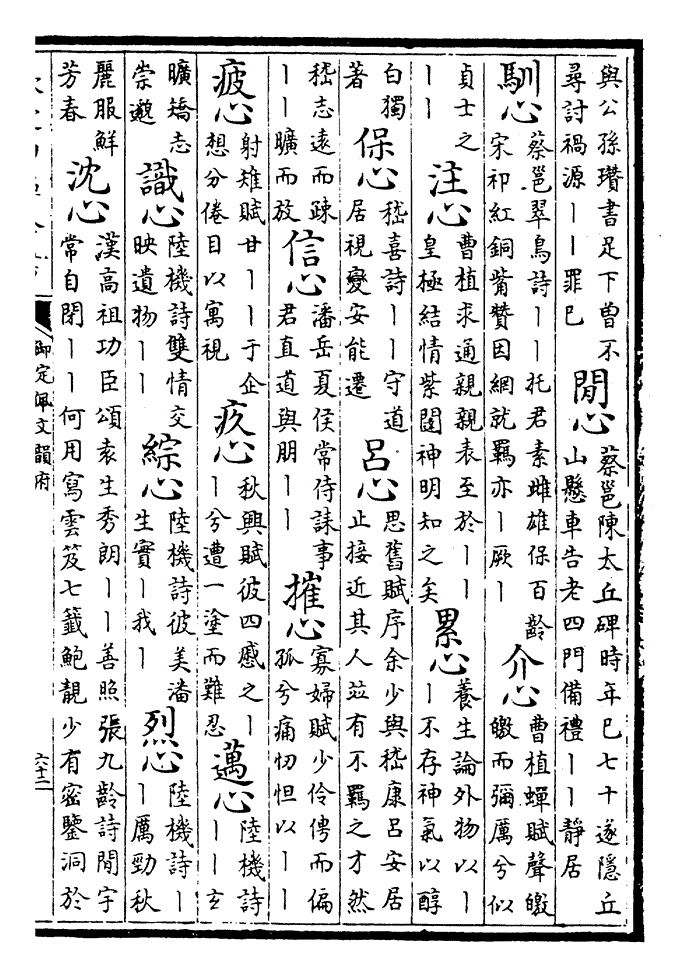 與公孫瓚書足下曾不
尋討禍源丨丨罪已
閒心
蔡邕陳太丘碑時年已七十遂隱丘
山懸車告老四門備禮丨丨靜居
馴心
蔡邕翠鳥詩丨丨托君素雌雄保百齡
宋祁紅銅觜贊因網就羈亦丨厥丨
介心
曹植蟬賦聲皦
皦而彌厲兮似
貞士之
丨丨
注心
曹植求通親親表至於丨丨
皇極結情紫闥神明知之矣
累心
養生論外物以丨
丨不存神氣以醇
白獨
著
保心
嵇喜詩丨丨守道
居視變安能遷
呂心
思舊賦序余少與嵇康呂安居
止接近其人並有不羈之才然
嵇志遠而疎
丨丨曠而放
信心
潘岳夏侯常侍誄事
君直道與朋丨丨
摧心
寡婦賦少伶俜而偏
孤兮痛忉怛以丨丨
疲心
射雉賦甘丨丨于企
想分倦目以寓視
疚心
秋興賦彼四慼之丨
丨兮遭一塗而難忍
邁心
陸機詩
丨丨玄
曠矯志
崇邈
識心
陸機詩雙情交
映遺物丨丨
綜心
陸機詩彼美潘
生實丨我丨
烈心
陸機詩丨
丨厲勁秋
麗服鮮
芳春
沈心
漢高祖功臣頌袁生秀朗丨丨善照張九齡詩閒宇
常自閉丨丨何用寫雲笈七籤鮑靚少有密鑒洞於
御定佩文韻府
六十二